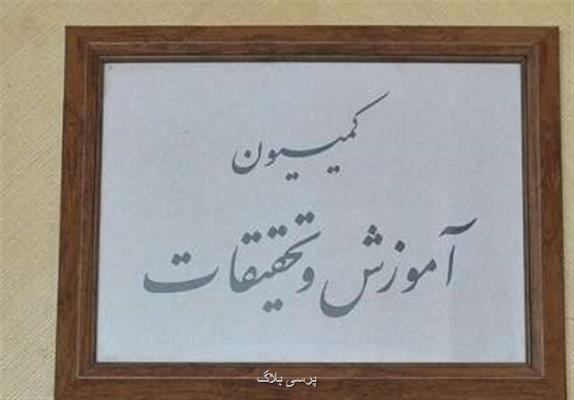 کمیسیون
آموزش و تحقیقات
پرسی بلاگ